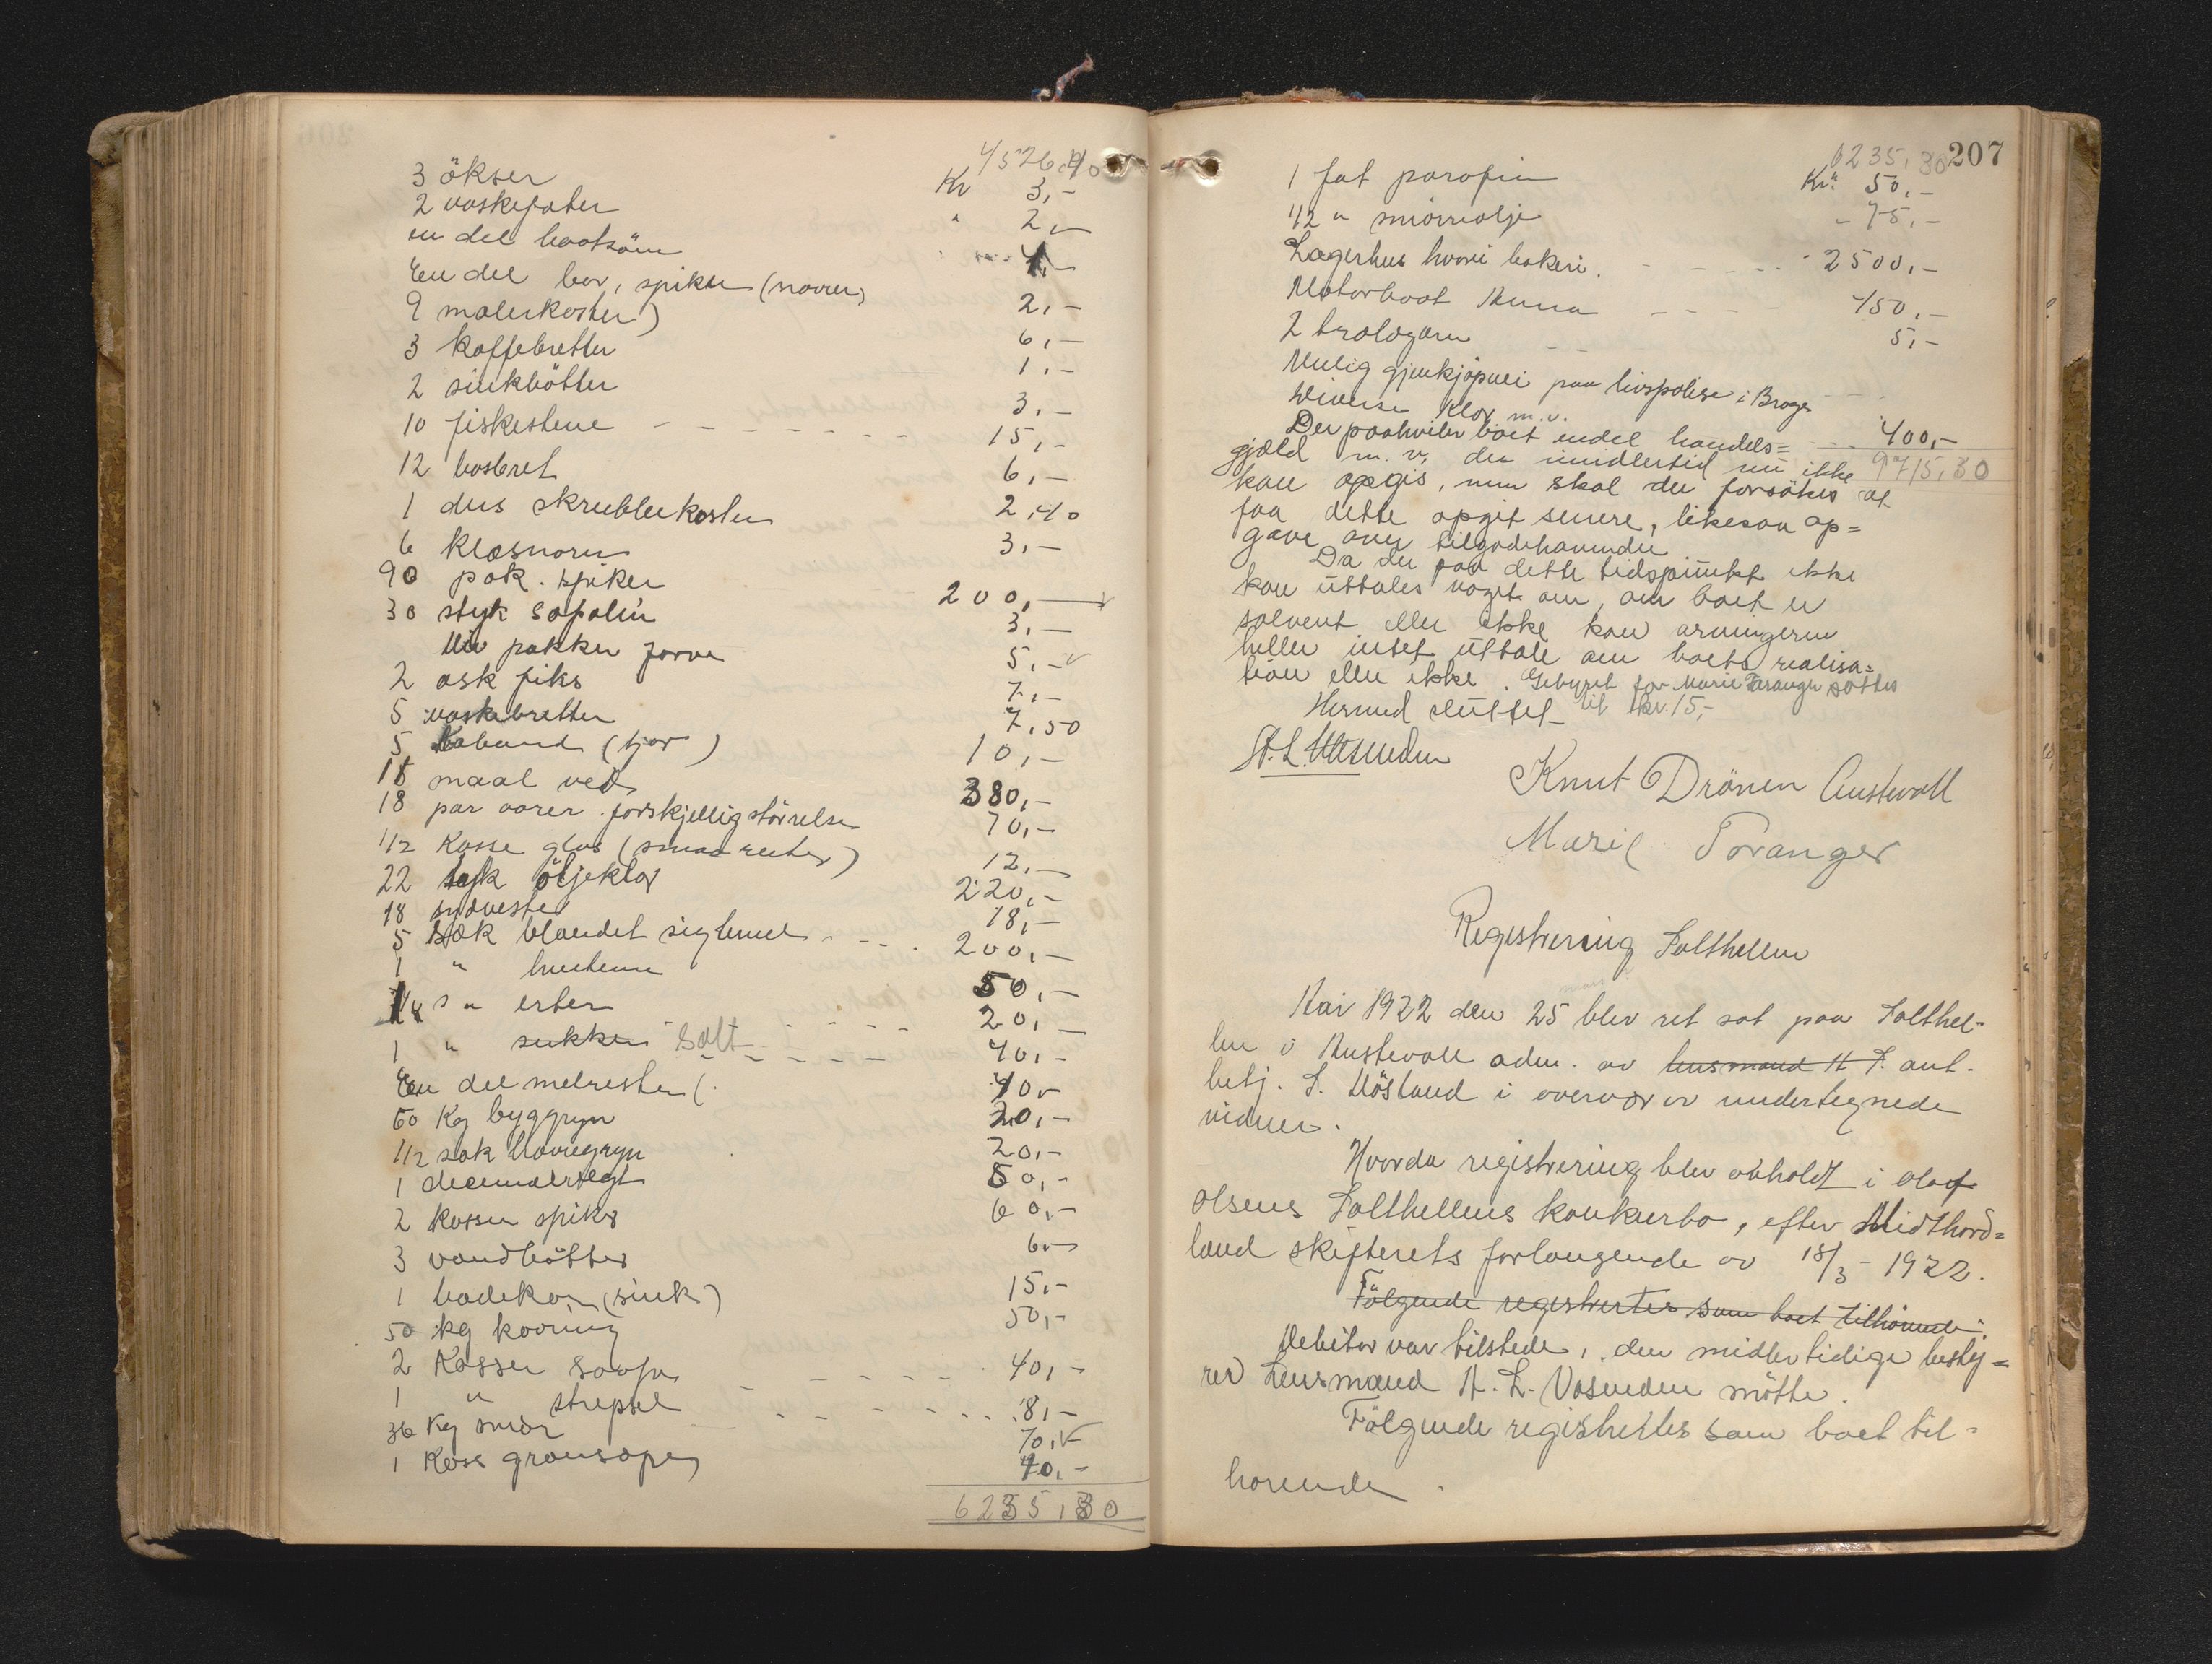 4526,40
3 økser Kr 3,-
2 vaskefater " 2,-
en del baatsöm 4,-
En del bor, spiker (navrer) 2,-
9 malerkoster) 6,-
3 kaffebretter 1,-
2 sinkbötter 3,-
10 fiskestene - - - - - - - 15,-
12 bosbret 6,-
1 dus skrubbekoster 2,40
6 klæsnorer 3,-
90 pak. spiker 200,-
30 styk sapolin 3,-
pakker farve 5,-
2 ask fiks 7,-
5 vaskebretter 7,50
5 (tjor) 10,-
18 maal ved 380,-
18 par aarer forskjellig störrelse 70,-
1/2 Kasse glas (smaa ruter) 12,-
22 styk öljeklær 220,-
18 sydvester 18,-
5 sæk blandet sigtemel - - - 200,-
1 " hvetemel 50,-
1/4 s " erter - - - - - 20,-
1 " sukker Salt - - - - 40,-
En del melrester ( 40,-
50 Kg byggryn 20,-
1/2 sæk havregryn 20,-
1 decimalvegt 50,-
2 kasser spiker 60,-
3 vandbötter 6,-
1 badekar (sink) 15,-
50 kg kavring 50,-
2 Kasser saape - - - - - 40,-
1 " strepsel - - - - - - 8,-
36 Kg smör 70,-
1 Kass grönsåpe 40,-
6235,30
207
6235,30
1 fat parafin Kr. 50,-
1/2 " smörreolje " 75,-
Lagerhus hvori bakeri. - - - - - 2500,-
Motorbaat Anna - - - - 450,-
2 tralagarn - - 5,-
Mulig gjenkjöpsvei paa livspolise i Brage
Diverse klær m.v. 400,-
Der paahviler boet endel handels= 9715,30
gjæld m. v, der imidlertid nu ikke
kan opgis, men skal der forsökes at
faa dette opgit senere, likesaa op=
gave over tilgodehavender
Da der paa dette tidspunkt ikke
kan uttales noget om, om boet er
solvent eller ikke kan arvingerne
heller intet uttale om boets realisa=
tion eller ikke. Gebyret for Marie Taranger sattes
til kr. 15,-
Hermed sluttet
Knut Drönen Austevoll
Marie Toranger
Registrering Salthellen
Aar 1922 den 25 mars blev ret sat paa Salthel-
len i Austevoll adm. av lensmand A L. aut.
betj. L. Möstand i overvær av undertegnede
vidner.
Hvorda registrering blev avholdt i Olaf
Olsens Salthellens konkursbo, efter Midthord=
land skifterets forlangende av 18/3 - 1922.
Fölgende registrertes som boet tilhörende:
Debitor var tilstede, den midlertidige besty=
rer Lensmand A. L. Vasenden mötte.
Fölgende registrertes som boet til-
hörende.